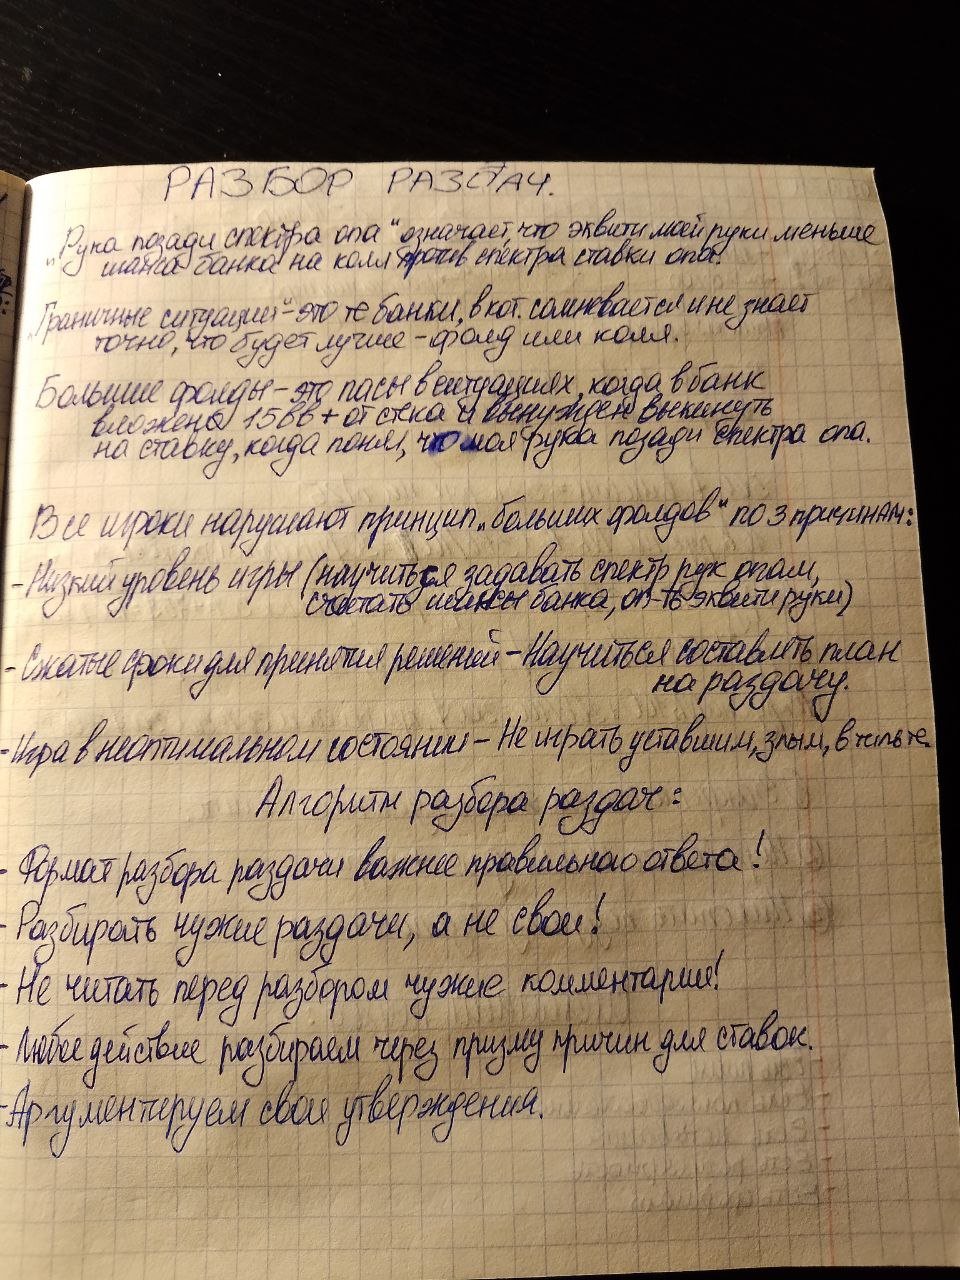 РАЗБОР РАЗДАЧ.
„Рука позади спектра опа" означает, что эквити моей руки меньше
шанса банка на колл против спектра ставки опа.
„Граничные ситуации" - это те банки, в кот. сомневается и не знает
точно, что будет лучше - фолд или колл.
Большие фолды - это пасы в ситуациях, когда в банк
вложено 15ВВ+ от стека и вынужден выкинуть
на ставку, когда понял, что моя рука позади спектра опа.
Все игроки нарушают принцип „больших фолдов" по 3 причинам:
- Низкий уровень игры (научиться задавать спектр рук опам,
считать шансы банка, оп-ть эквити руки)
- Сжатые сроки для принятия решений - Научиться составлять план
на раздачу.
- Игра в неоптимальном состоянии - Не играть уставшим, злым, в тильте.
Алгоритм разбора раздач:
- Формат разбора раздачи важнее правильного ответа!
- Разбирать чужие раздачи, а не свои!
- Не читать перед разбором чужие комментарии!
- Любое действие разбираем через призму причин для ставок.
- Аргументируем свои утверждения.